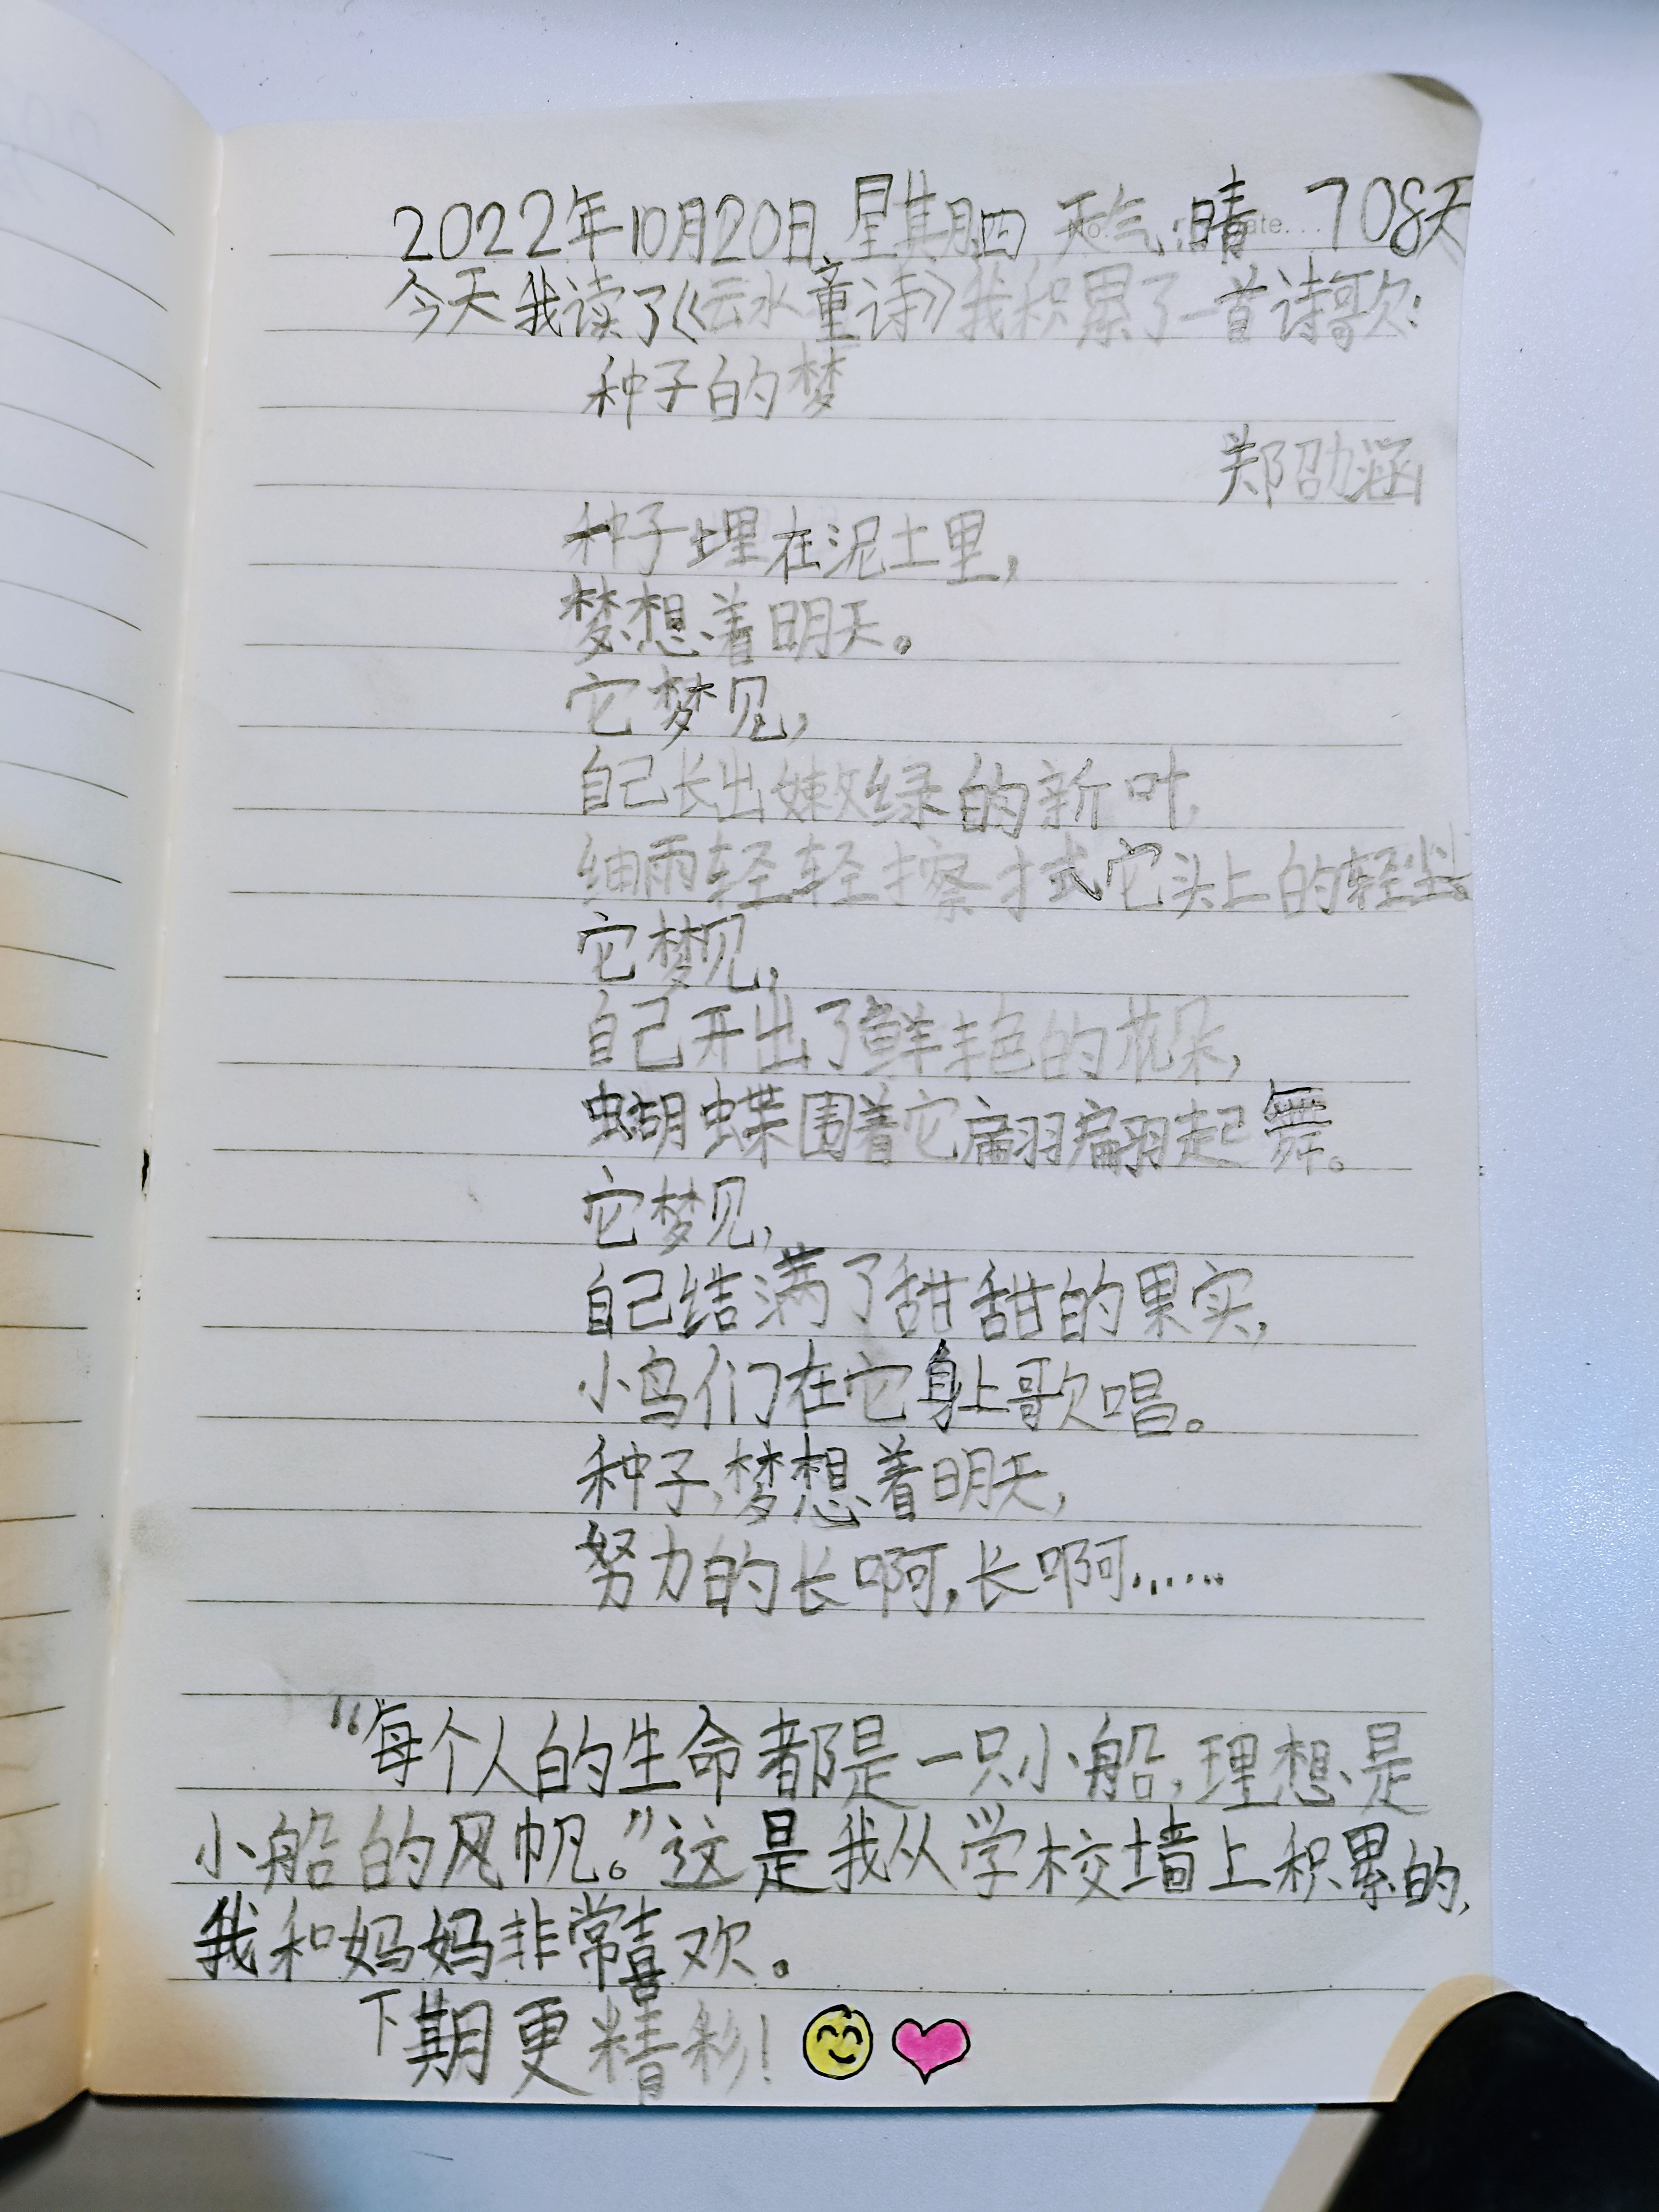 2022年10月20日 星期四 天气:晴 708天
今天我读了《云水童诗》我积累了一首诗歌:
种子的梦
郑劭涵
种子埋在泥土里,
梦想着明天。
它梦见,
自己长出嫩绿的新叶,
细雨轻轻擦拭它头上的轻尘。
它梦见,
自己开出了鲜艳的花朵,
蝴蝶围着它翩翩起舞。
它梦见,
自己结满了甜甜的果实,
小鸟们在它身上歌唱。
种子梦想着明天,
努力的长啊,长啊……
“每个人的生命都是一只小船,理想是
小船的风帆。”这是我从学校墙上积累的,
我和妈妈非常喜欢。
下期更精彩!